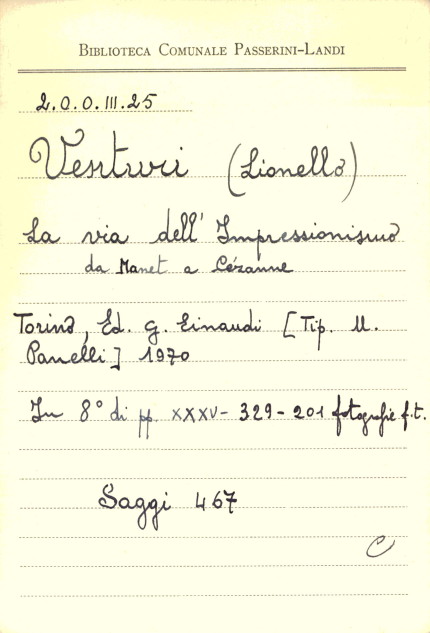 BIBLIOTECA COMUNALE PASSERINI-LANDI
2.0.0.III.25
Venturi (Lionello)
La via dell'Impressionismo
da Manet a Cézanne
Torino, Ed. G. Einaudi [Tip. U.
Panelli] 1970
In 8° di pp. XXXV-329-201 fotografie f.t.
Saggi 467
C